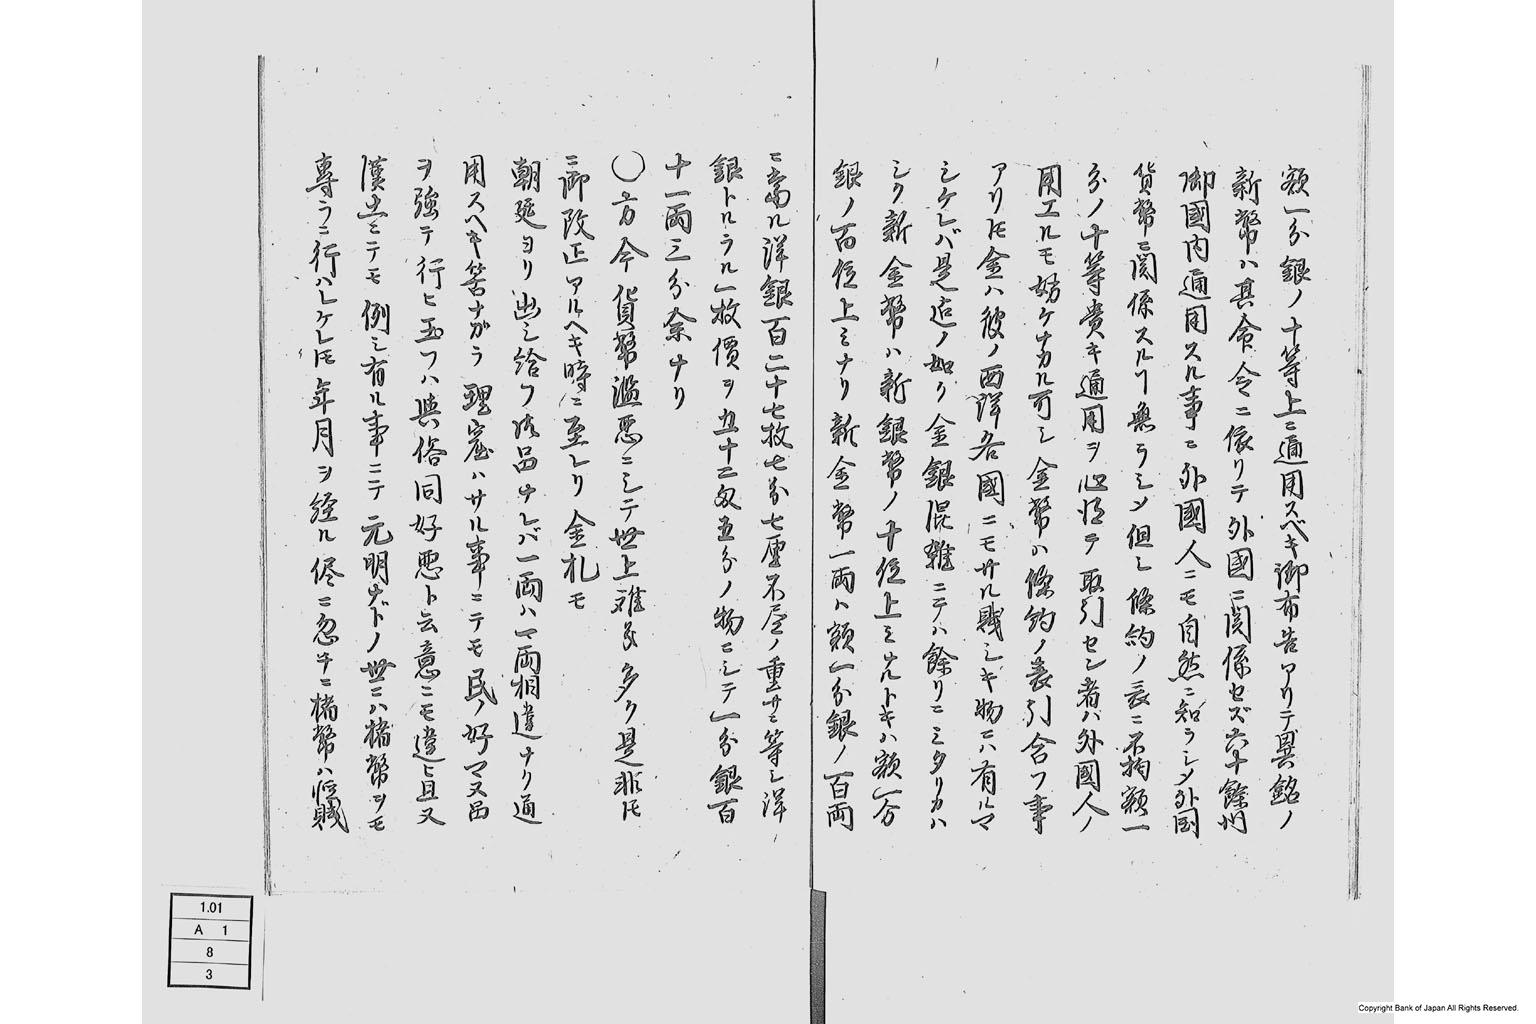 額一分銀ノ十等上ニ通用スベキ御布告アリテ異銘ノ
新幣ハ其令今ニ依リテ外國ニ関係セズ六十餘州
御國内通用スル事ニ外國人ニモ自然ニ知ラシメ外国
貨幣ニ関係スルヿ無ラシメ但シ條約ノ表ニ不拘額一
分ノ十等貴キ通用ヲ心得テ取引セン者ハ外國人ノ
用エルモ妨ケナカル可シ金幣ハ條約ノ表引合フ事
アリ𪜈金ハ彼ノ西洋各國ニモサル賤シキ物ニハ有ルマ
シケレバ是迠ノ如ク金銀混雑ニテハ餘リニミタリカハ
シク新金幣ハ新銀幣ノ十位上ミナルトキハ額一分
銀ノ百位上ミナリ新金幣一両ハ額一分銀ノ一百両
ニ當ル洋銀一百二十七枚七分七厘不尽ノ重サニ等シ洋
銀トルラル一枚價ヲ五十二匁五分ノ物ニシテ一分銀百
十一両三分余ナリ
〇方今貨幣濫悪ニシテ世上難多ク是非𪜈
ニ御改正アルヘキ時ニ至レリ金札モ
朝廷ヨリ出シ給フ品ナレバ一両ハ一両相違ナク通
用スヘキ筈ナガラ理窟ハサル事ニテモ民ノ好マヌ品
ヲ強テ行ヒ玉フハ與俗同好悪ト云意ニモ違ヒ且又
漢土ニテモ例シ有ル事ニテ元明ナドノ世ニハ楮幣ヲモ
専ラニ行ハレケレ𪜈年月ヲ経ル儘ニ忽チニ楮幣ハ賤
1.01
A 1
8
3
Copyright Bank of Japan All Rights Reserved.